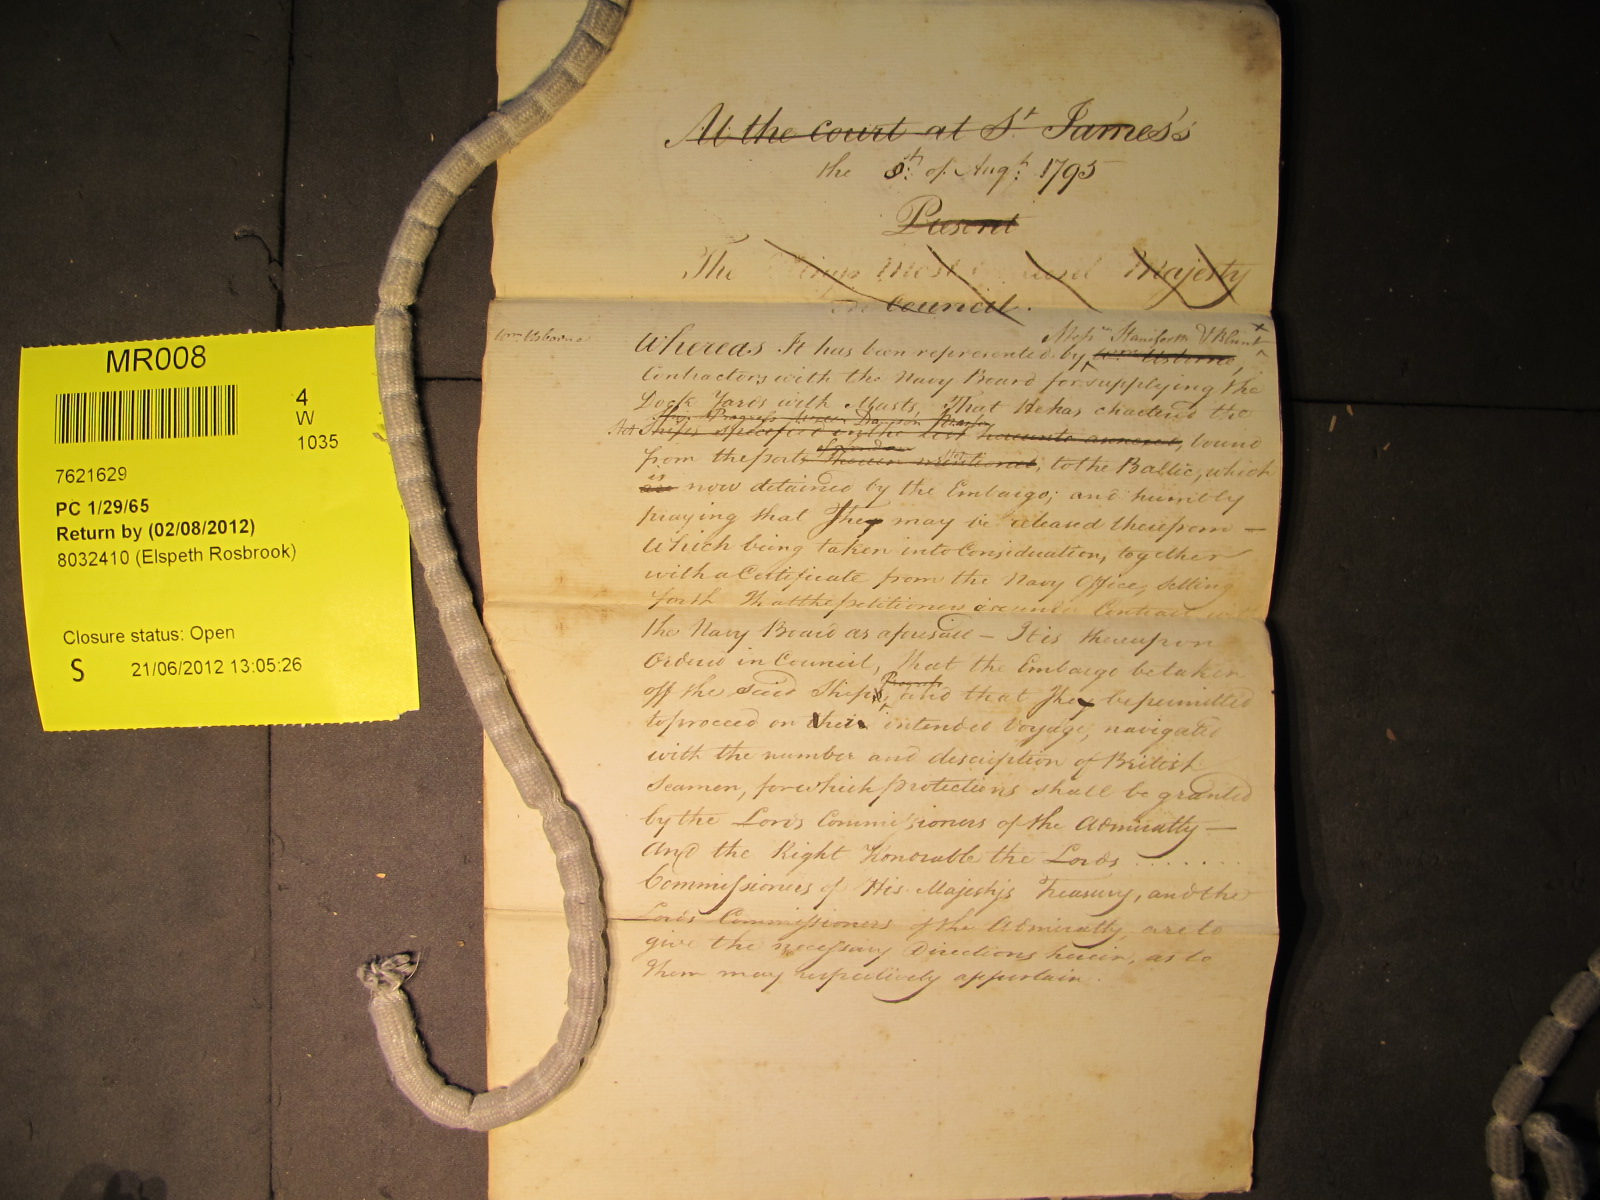 MR008
4
W
1035
7621629
PC 1/29/65
Return by (02/08/2012)
8032410 (Elspeth Rosbrook)
Closure status: Open
S 21/06/2012 13:05:26
At the Court at St James's
the 5th of Augt: 1795
Present
The Kings Most Majesty
in Council.
Wm Usborne
Messrs Staniforth & Blunt
Whereas It has been represented by Wm Usborne,
Contractors with the Navy Board for supplying the
Dock Yards with Masts, That He has chartered the
Ship Progress
Ships specified in the List hereunto annexed, bound
from the ports therein mentioned, to the Baltic, which
is
are now detained by the Embargo; and humbly
praying that They may be released therefrom —
Which being taken into Consideration, together
with a Certificate from the Navy Office, setting
forth That the petitioners are under Contract with
the Navy Board as aforesaid — It is thereupon
Ordered in Council, that the Embargo be taken
Progress
off the said Ships, and that They be permitted
to proceed on their intended Voyage, navigated
with the number and description of British
Seamen, for which protections shall be granted
by the Lords Commissioners of the Admiralty —
And the Right Honorable the Lords .......
Commissioners of His Majesty's Treasury, and the
Lords Commissioners of the Admiralty, are to
give the necessary Directions herein, as to
them may respectively appertain.